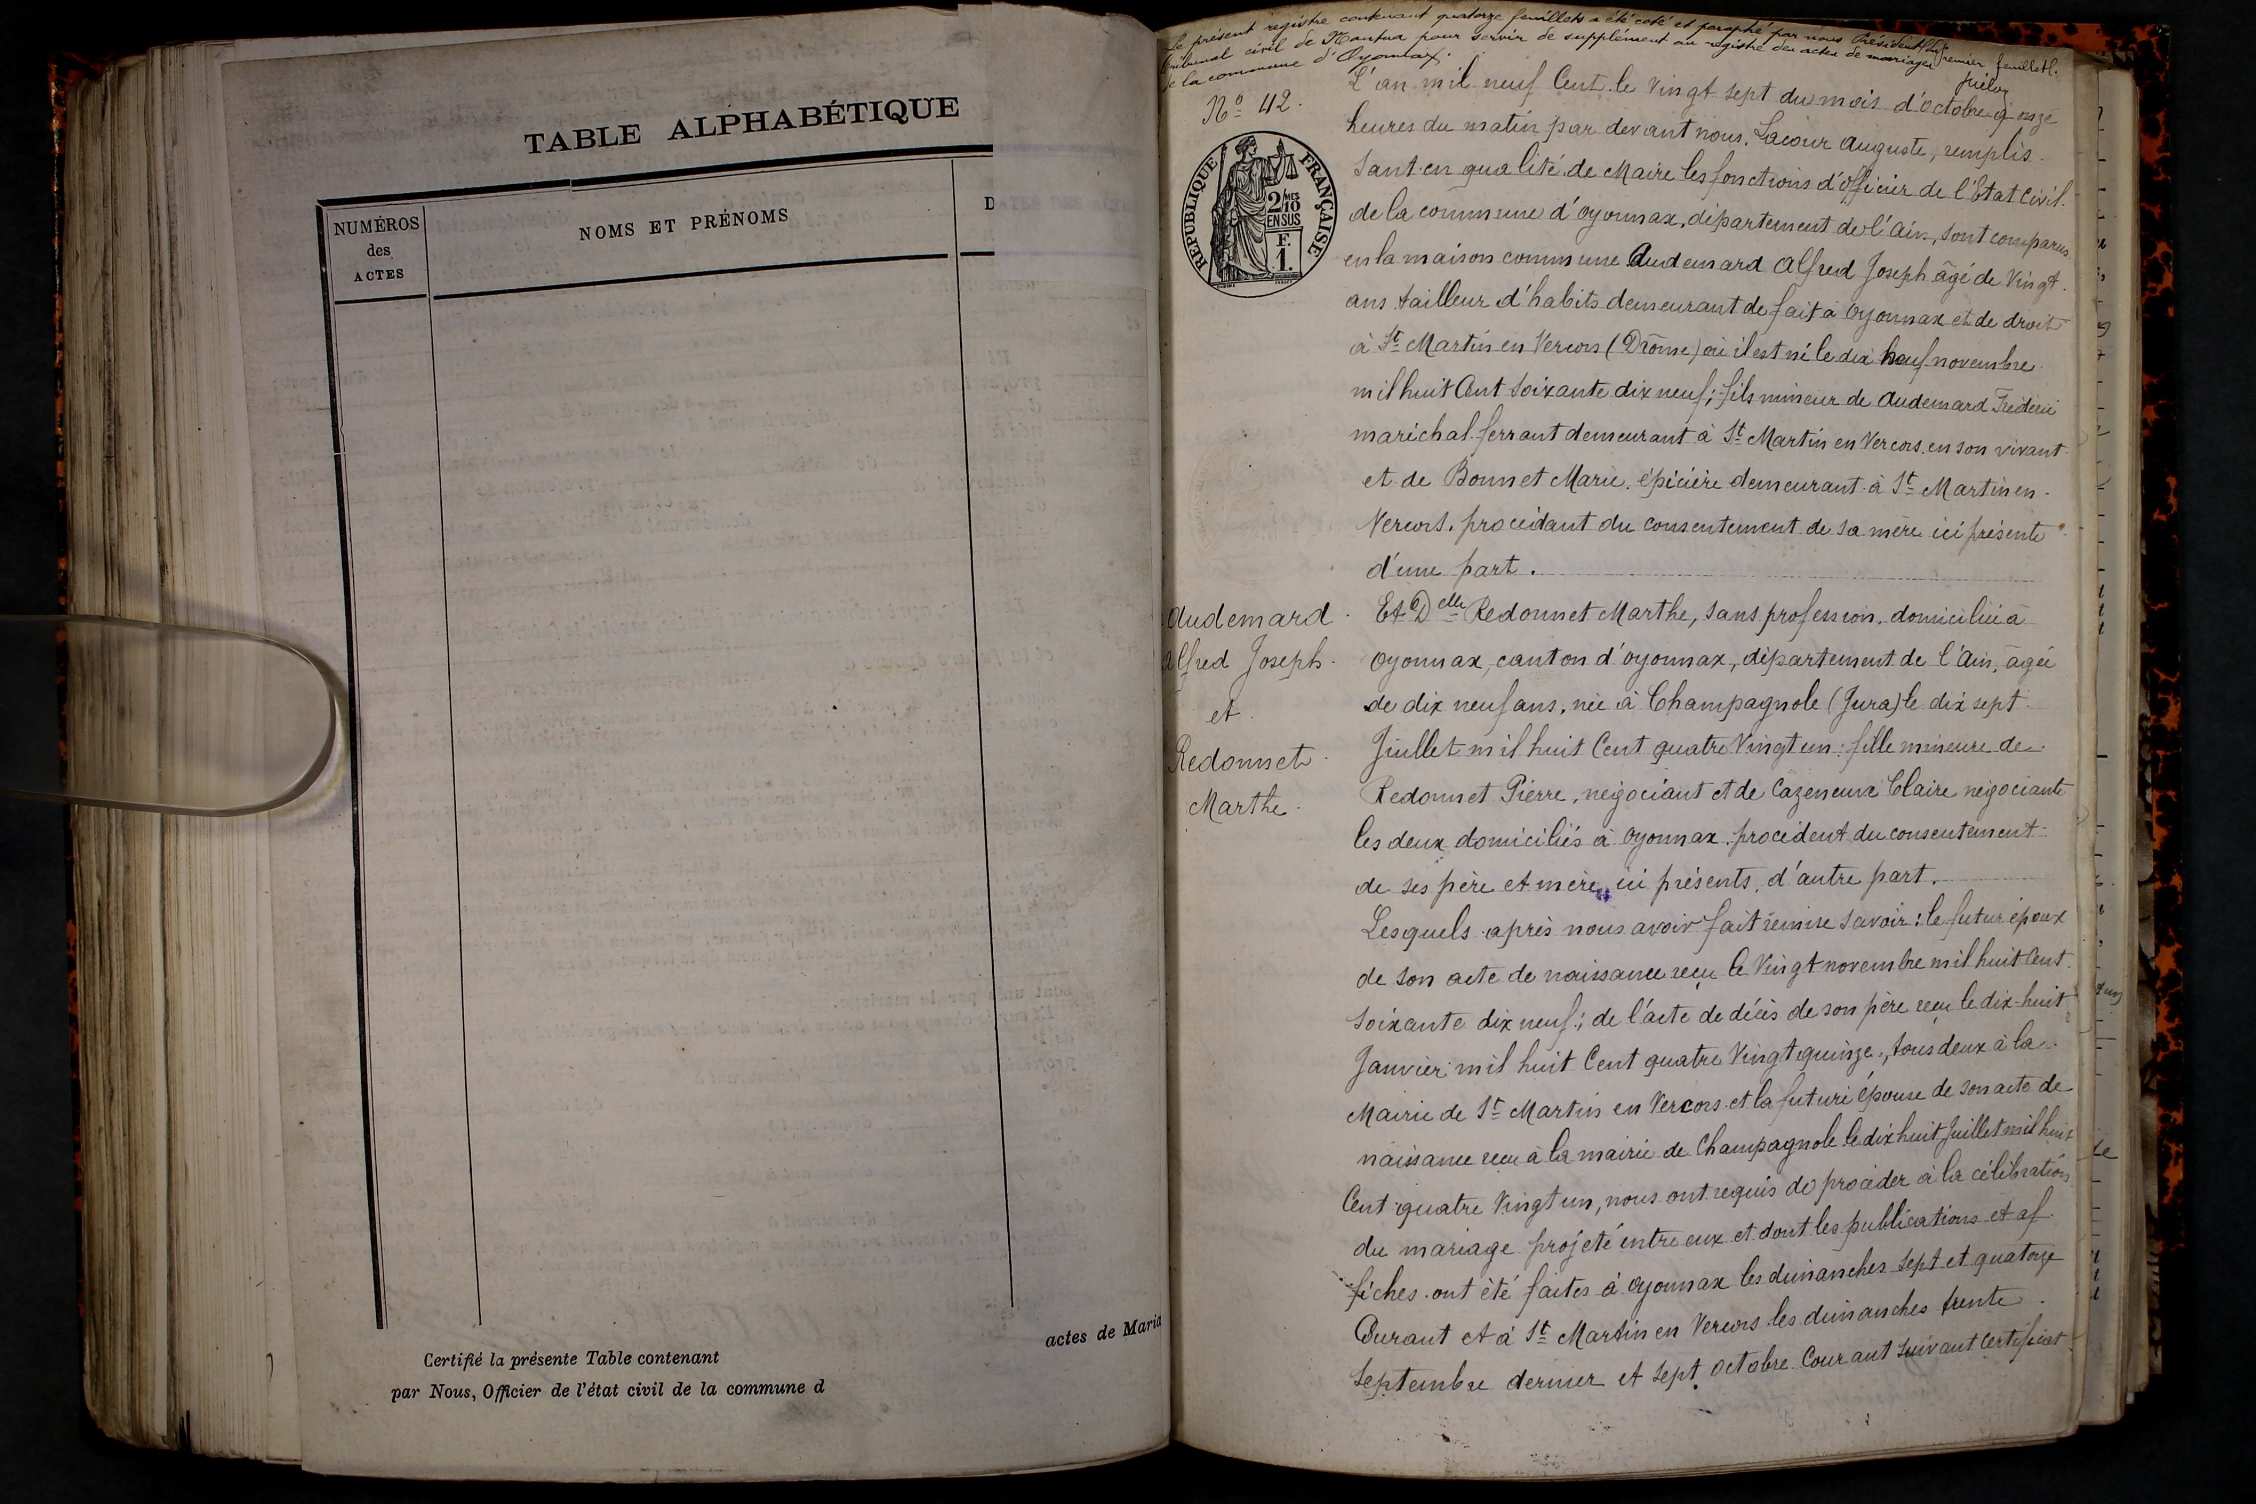 TABLE ALPHABÉTIQUE
NUMÉROS
des
ACTES
NOMS ET PRÉNOMS
D
Certifié la présente Table contenant
actes de Maria
par Nous, Officier de l'état civil de la commune d
Le présent registre contenant quatorze feuillets a été coté et paraphé par nous Président du
Tribunal civil de Nantua pour servir de supplément au registre des actes de mariages
de la commune d'Oyonnax.
Premier feuillet.
No 42.
RÉPUBLIQUE FRANÇAISE
2/10 MES
EN SUS
F.
1.
L'an mil neuf Cent le Vingt sept du mois d'Octobre à onze
heures du matin par devant nous, Lacour Auguste, remplis
sant en qualité de Maire les fonctions d'officier de l'Etat Civil.
de la commune d'Oyonnax, département de l'Ain, sont comparus
en la maison commune Audemard Alfred Joseph âgé de Vingt
ans tailleur d'habits demeurant de fait à Oyonnax et de droit
à St Martin en Vercors (Drôme) où il est né le dix neuf novembre
mil huit Cent soixante dix neuf; fils mineur de Audemard Frédéric
maréchal ferrant demeurant à St Martin en Vercors en son vivant
et de Bonnet Marie, épicière demeurant à St Martin en
Vercors, procédant du consentement de sa mère ici présente
d'une part.
Audemard
Alfred Joseph
et
Redonnet
Marthe.
Et Delle Redonnet Marthe, sans profession, domiciliée à
Oyonnax, canton d'Oyonnax, département de l'Ain, âgée
de dix neuf ans, née à Champagnole (Jura) le dix sept
Juillet mil huit Cent quatre Vingt un: fille mineure de
Redonnet Pierre, négociant et de Cazeneuve Claire négociante
les deux domiciliés à Oyonnax, procédent du consentement
de ses père et mère, ici présents, d'autre part.
Lesquels après nous avoir fait remise savoir: le futur époux
de son acte de naissance reçu le Vingt novembre mil huit Cent
soixante dix neuf; de l'acte de décès de son père reçu le dix-huit
Janvier mil huit Cent quatre Vingt quinze, tous deux à la
Mairie de St Martin en Vercors et la future épouse de son acte de
naissance reçu à la mairie de Champagnole le dix huit Juillet mil huit
Cent quatre Vingt un, nous ont requis de procéder à la célébration
du mariage projeté entre eux et dont les publications et af
fiches ont été faites à Oyonnax les dimanches sept et quatorze
Courant et à St Martin en Vercors les dimanches trente
Septembre dernier et sept Octobre Courant suivant certificat